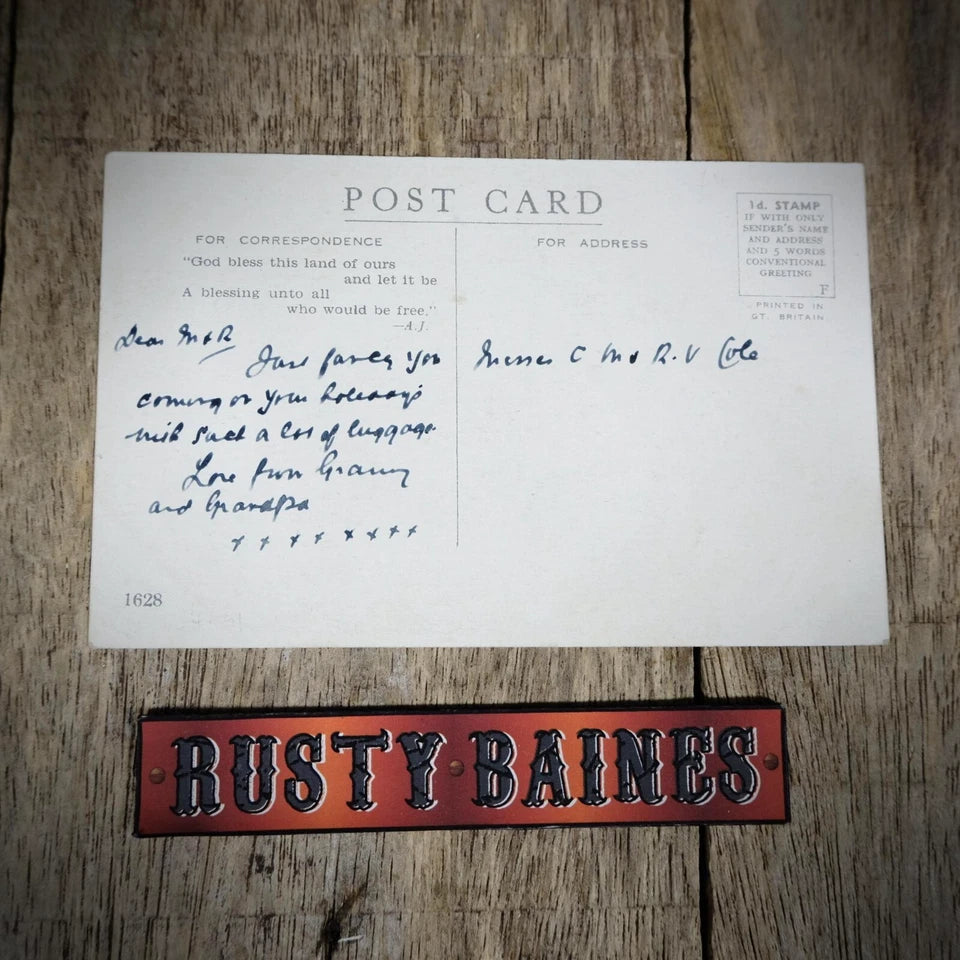 POST CARD
FOR CORRESPONDENCE
"God bless this land of ours
and let it be
A blessing unto all
who would be free."
—A.J.
Dear M & R
Just fancy you
coming on your holidays
with such a lot of luggage
Love from Granny
and Grandpa
x x x x x x x x
1628
FOR ADDRESS
1d. STAMP
IF WITH ONLY
SENDER'S NAME
AND ADDRESS
AND 5 WORDS
CONVENTIONAL
GREETING
F
PRINTED IN
GT. BRITAIN
Messes C M & R. V Cole
RUSTY BAINES